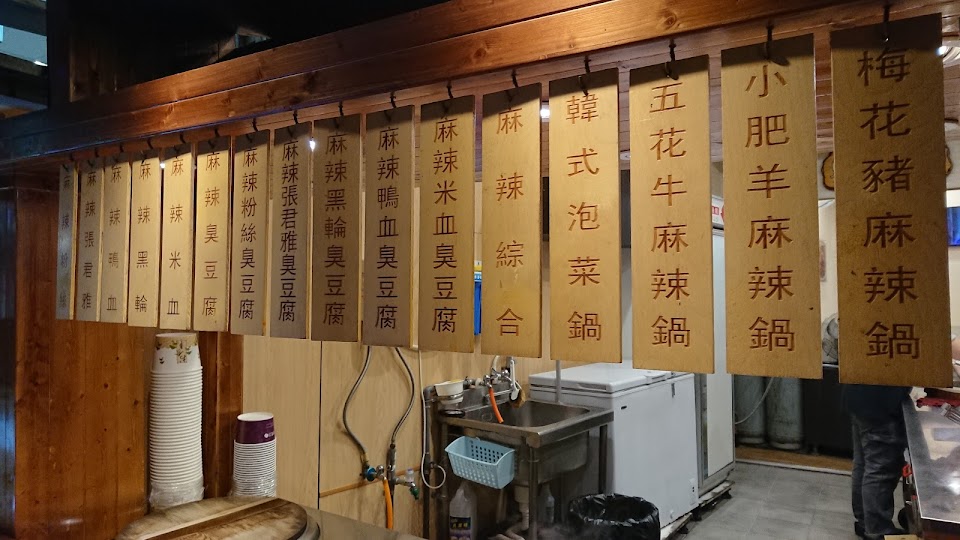 梅花豬麻辣鍋
小肥羊麻辣鍋
五花牛麻辣鍋
韓式泡菜鍋
麻辣綜合
麻辣米血臭豆腐
麻辣鴨血臭豆腐
麻辣黑輪臭豆腐
麻辣張君雅臭豆腐
麻辣粉絲臭豆腐
麻辣臭豆腐
麻辣米血
麻辣黑輪
麻辣鴨血
麻辣張君雅
麻辣粉絲